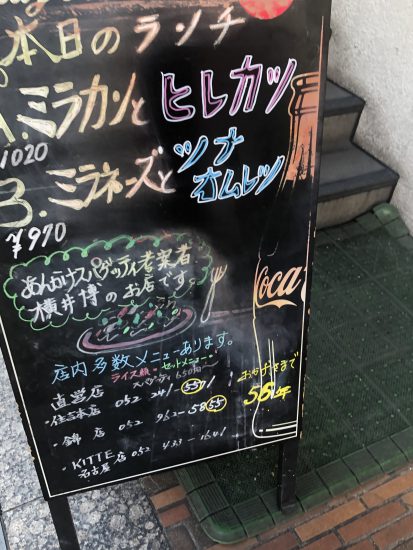 本日のランチ
A.ミラカンと ヒレカツ
1020
B.ミラネーズと ツナ
オムレツ
¥970
あんかけスパゲッティ考案者
横井博のお店です。
店内多数メニューあります。
ライス類・セットメニュー・
直営店
・住吉本店 052 241-5571
・錦 店 052 962-5855
・KITTE
名古屋店 052 433-1641
おかげさまで
56年
Coca